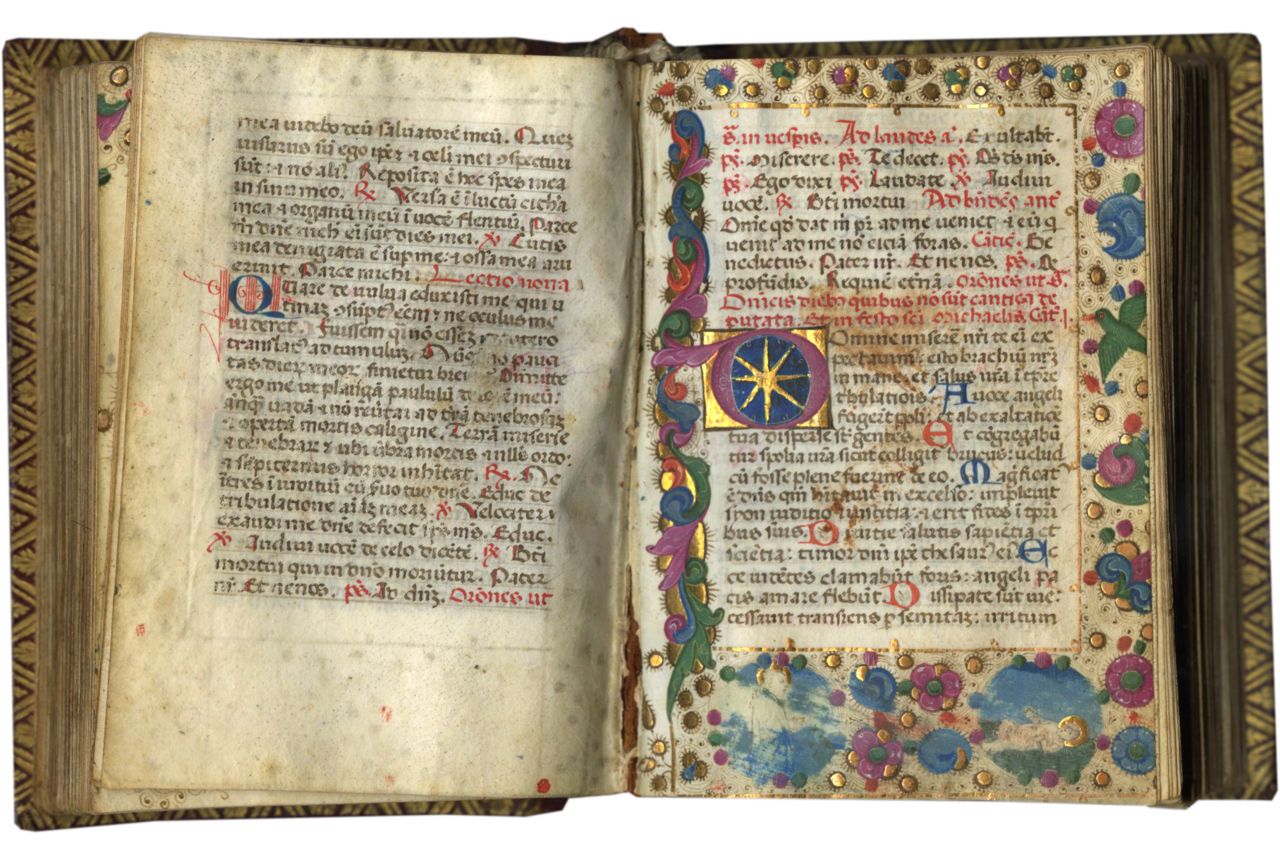 mea videbo deū salvatorē meū. Quez
visurus sū ego ip̄e & oculi mei ꝯspecturi
sūt: & nō ali. Reposita ē hec spes mea
in sinu meo. ℞ Versa ē ī luctū cithā
mea & organū meū ī vocē flentiū. Parce
m̄ dn̄e nich ei sūt dies mei. ℣ Cutis
mea denigrata ē sup me: & ossa mea aru
erunt. Parce michi. Lectio nona
Quare de vulva eduxisti me qui u
tinaz ꝯsūpt eēm ne oculus me
videret. Fuissem q̄ nō essez utero
translat' ad tumuluz. pauci
tas dierū meorꝝ finietur brevi Dimitte
ergo me ut plangā paululū dolorē meū:
anq̄ vadā & nō revtar ad trā tenebrosaz
& opertā mortis caligine. Terrā miserie
& tenebrarꝝ & ubi ūbra mortis & nullꝰ ordo:
& sēpiternus horror inhitat. ℞ Ne
ītres ī iuditiū cū ƥuo tuo dn̄e. Educ de
tribulatione aīaz meaz ℣ Velociter
exaudi me dn̄e defecit sp̄s mꝰ. Educ.
℣ Audivi vocē de celo dicētē. ℞ Bt̄i
mortui qui in dn̄o moriūtur. Pater
nr̄. Et ne nos. p̄s. Ad dn̄z. Orōnes ut
s̄. in vesp̄is. Ad laudes a. Exultabt.
p̄s. Miserere. p̄s. Te decet. p̄s. Ds ds mꝰ.
p̄s. Ego dixi p̄s. Laudate ℣ Audivi
vocē. ℞ Bt̄i mortui Ad bn̄des ant
Om̄e qd dat m̄ pr̄ ad me veniet & eū q
venit ad me nō eiciā foras. Cāti͛. Be
nedictus. Pater nr̄. Et ne nos. p̄s. De
profūdis. Requiē et̄nā. Orōnes ut s̄.
Dn̄icis dieb quibus nō sūt cantica de
putata. Et in festo sc̄i Michaelis. Cāt.
Domine miserē nr̄i te ei ex
pectavimꝰ: esto brachiū nr̄z
in mane. et salus nr̄a ī tp̄re
tribulatiōis. A voce angeli
fugerūt ppl̄i: et ab exaltatiōe
tua disperse sūt gentes. Et cōgregabū
tur spolia vr̄a sicut colligit brucus: velud
cū fosse plene fuerint de eo. Magficat
ē dn̄s qm̄ hitavit in excelso: implevit
syon iuditio & iustitia. & erit fides ī tp̄ri
bus suis. Divitie salutis sapiētia et
sciētia: timor dn̄i ip̄e thesaurꝰ ei. Ec
ce vidētes clamabūt foris: angeli pa
cis amare flebūt. Dissipate sūt vie:
cessavit transiens p semitaz: irritum